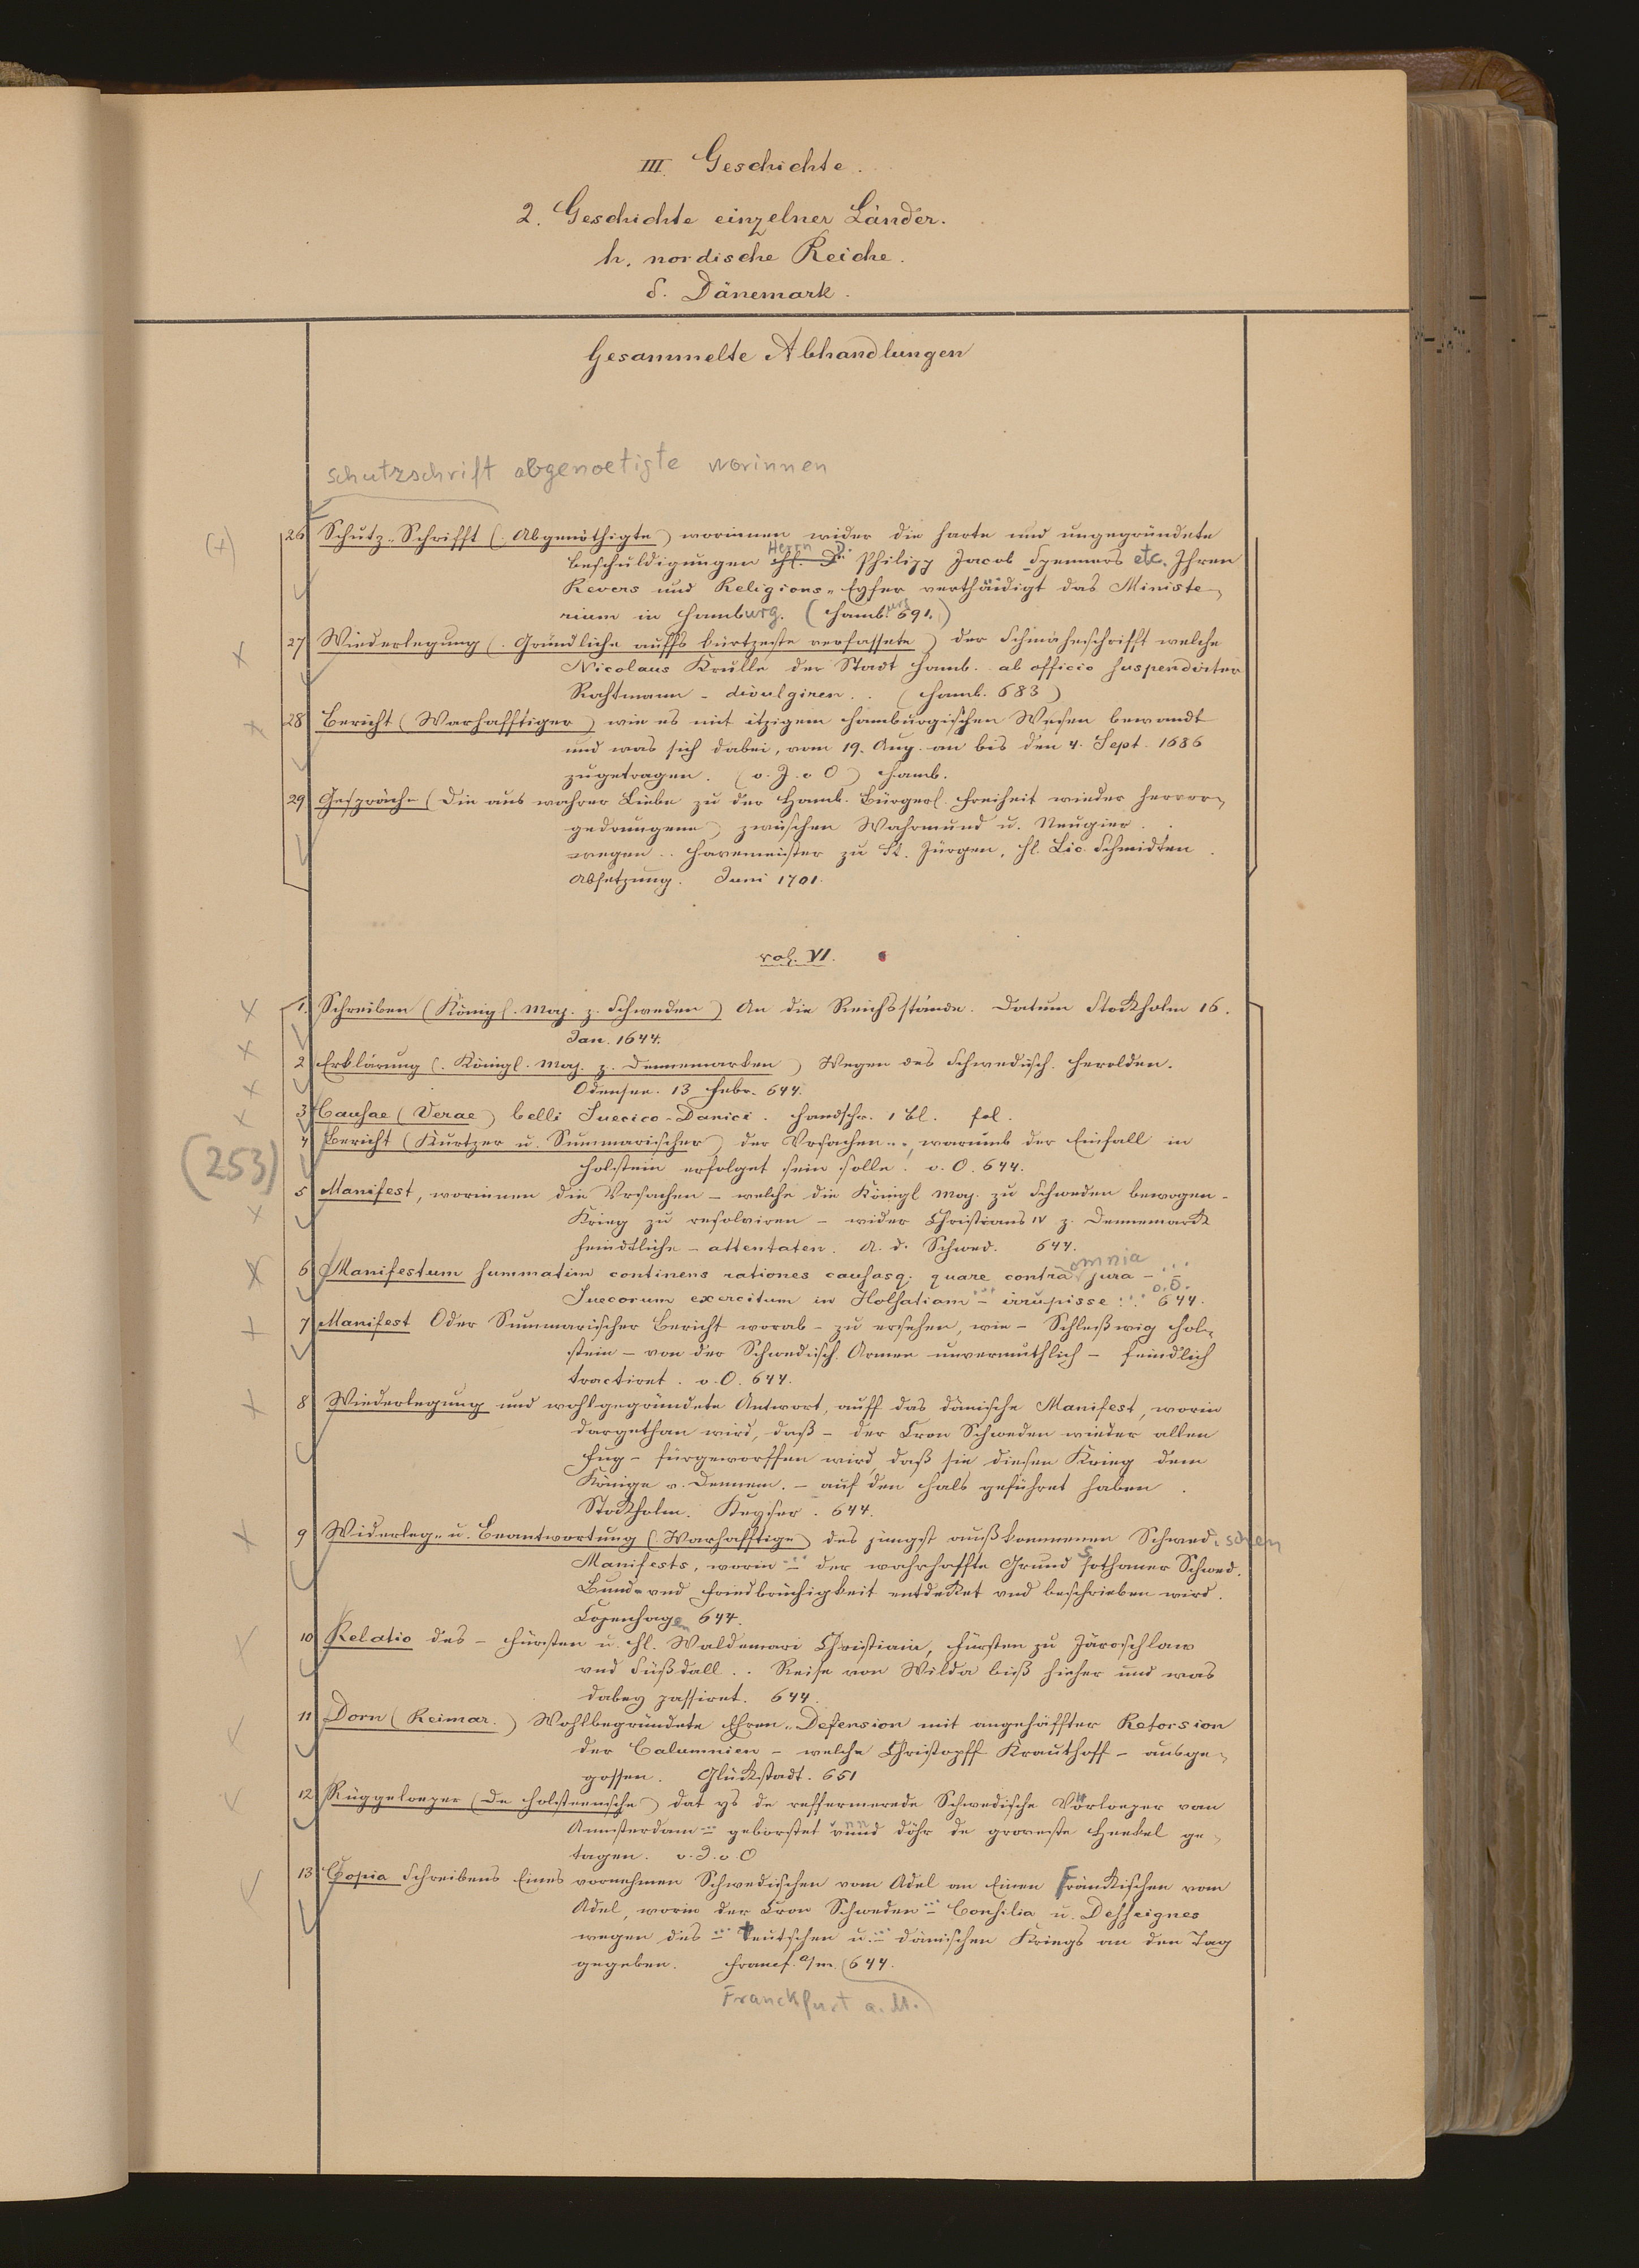 III. Geschichte.
2. Geschichte einzelner Länder.
h. nordische Reiche.
δ. Dänemark.
Gesammelte Abhandlungen
Schutzschrift abgenoetigte worinnen
(+)
26 Schutz-Schrifft (Abgenöthigte) worinnen wider die harte und ungegründete
Beschuldigungen Herrn D. Philipp Jacob Spenners etc. Ihren
Revers und Religions-Eyfer verthäidigt das Ministe-
rium in Hamburg. (Hamburg 691.)
27 Wiederlegung (Gründliche auffs kürtzeste verfassete) der Schmähschrifft welche
Nicolaus Krulle der Stadt Hamb. ab officio suspendirter
Rahtmann – divulgiren.. (Hamb. 683)
28 Bericht (Warhafftiger) wie es mit itzigem Hamburgischen Wesen bewandt
und was sich dabei, vom 19. Aug. an bis den 4. Sept. 1686
zugetragen. (o. J. o O) Hamb.
29 Gespräche (Die aus wahrer Liebe zu der Hamb. Bürgerl. Freiheit wieder hervor-
gedrungene) zwischen Wahrmund u. Neugier.
wegen.. Havemeister zu St. Jürgen, H. Lic. Schmidten
Absetzung. Juni 1701.
vol. VI.
1. Schreiben (Königl. Maj. z. Schweden) An die Reichsstände. Datum Stockholm 16.
Jan. 1644.
2 Erklärung (Königl. Maj. z. Dennemarken) Wegen des Schwedisch. Herolden.
Odensee. 13 Febr. 644.
3 Causae (Verae) belli Suecico-Danici. Handschr. 1 Bl. fol.
4 Bericht (Kurtzer u. Summarischer) der Vrsachen.., warumb der Einfall in
Holstein erfolget sein solle. o. O. 644.
(253)
5 Manifest, worinnen die Vrsachen – welche die Königl Maj. zu Schweden bewogen –
Krieg zu resolviren – wider Christians IV z. Dennemarck
feindtliche – attentaten. A. d. Schwed. 644.
6 Manifestum summatim continens rationes causasq. quare contra omnia jura – ...
Suecorum exercitum in Holsatiam ... irrupisse ... o.O. 644.
7 Manifest Oder Summarischer Bericht worab – zu ersehen, wie – Schleßwig Hol-
stein – von der Schwedisch. Armee unvermuthlich – feindlich
tractiret. o. O. 644.
8 Wiederlegung und wohlgegründete Antwort, auff das dänische Manifest, worin
dargethan wird, daß – der Cron Schweden wieder allen
Fug – fürgeworffen wird, daß sie diesen Krieg dem
Könige v. Dennem. – auf den Hals geführet haben.
Stockholm. Keyser. 644.
9 Widerleg- u. Beantwortung (Warhafftige) des jüngst außkommenen Schwedischen
Manifests, worin ... der wahrhaffte Grund sothaner Schwed.
Bund- vnd Friedbrüchigkeit entdecket vnd beschrieben wird.
Copenhagen 644.
10 Relatio des – Fürsten u. H. Waldemari Christiani, Fürsten zu Jaroschlaw
vnd Süßdall.. Reise von Wilda biß hieher und was
dabey passiret. 644.
11 Dorn (Reimar.) Wohlbegründete Ehren-Defension mit angehäffter Retorsion
der Calumnien – welche Christopff Krauthoff – ausge-
gossen. Glückstadt. 651
12 Rüggeloeper (De Holsteensche) dat ys de reffermerede Schwedische Vörloeper van
Amsterdam ... geborstet unnd döhr de groveste Heekel ge-
tagen. o. J. o O
13 Copia Schreibens Eines vornehmen Schwedischen vom Adel an Einen Fränckischen vom
Adel, worin der Cron Schweden ... Consilia u. Desseignes
wegen des ... teutschen u. ... dänischen Kriegs an den Tag
gegeben. Francf. a/m. 644.
Franckfurt a. M.